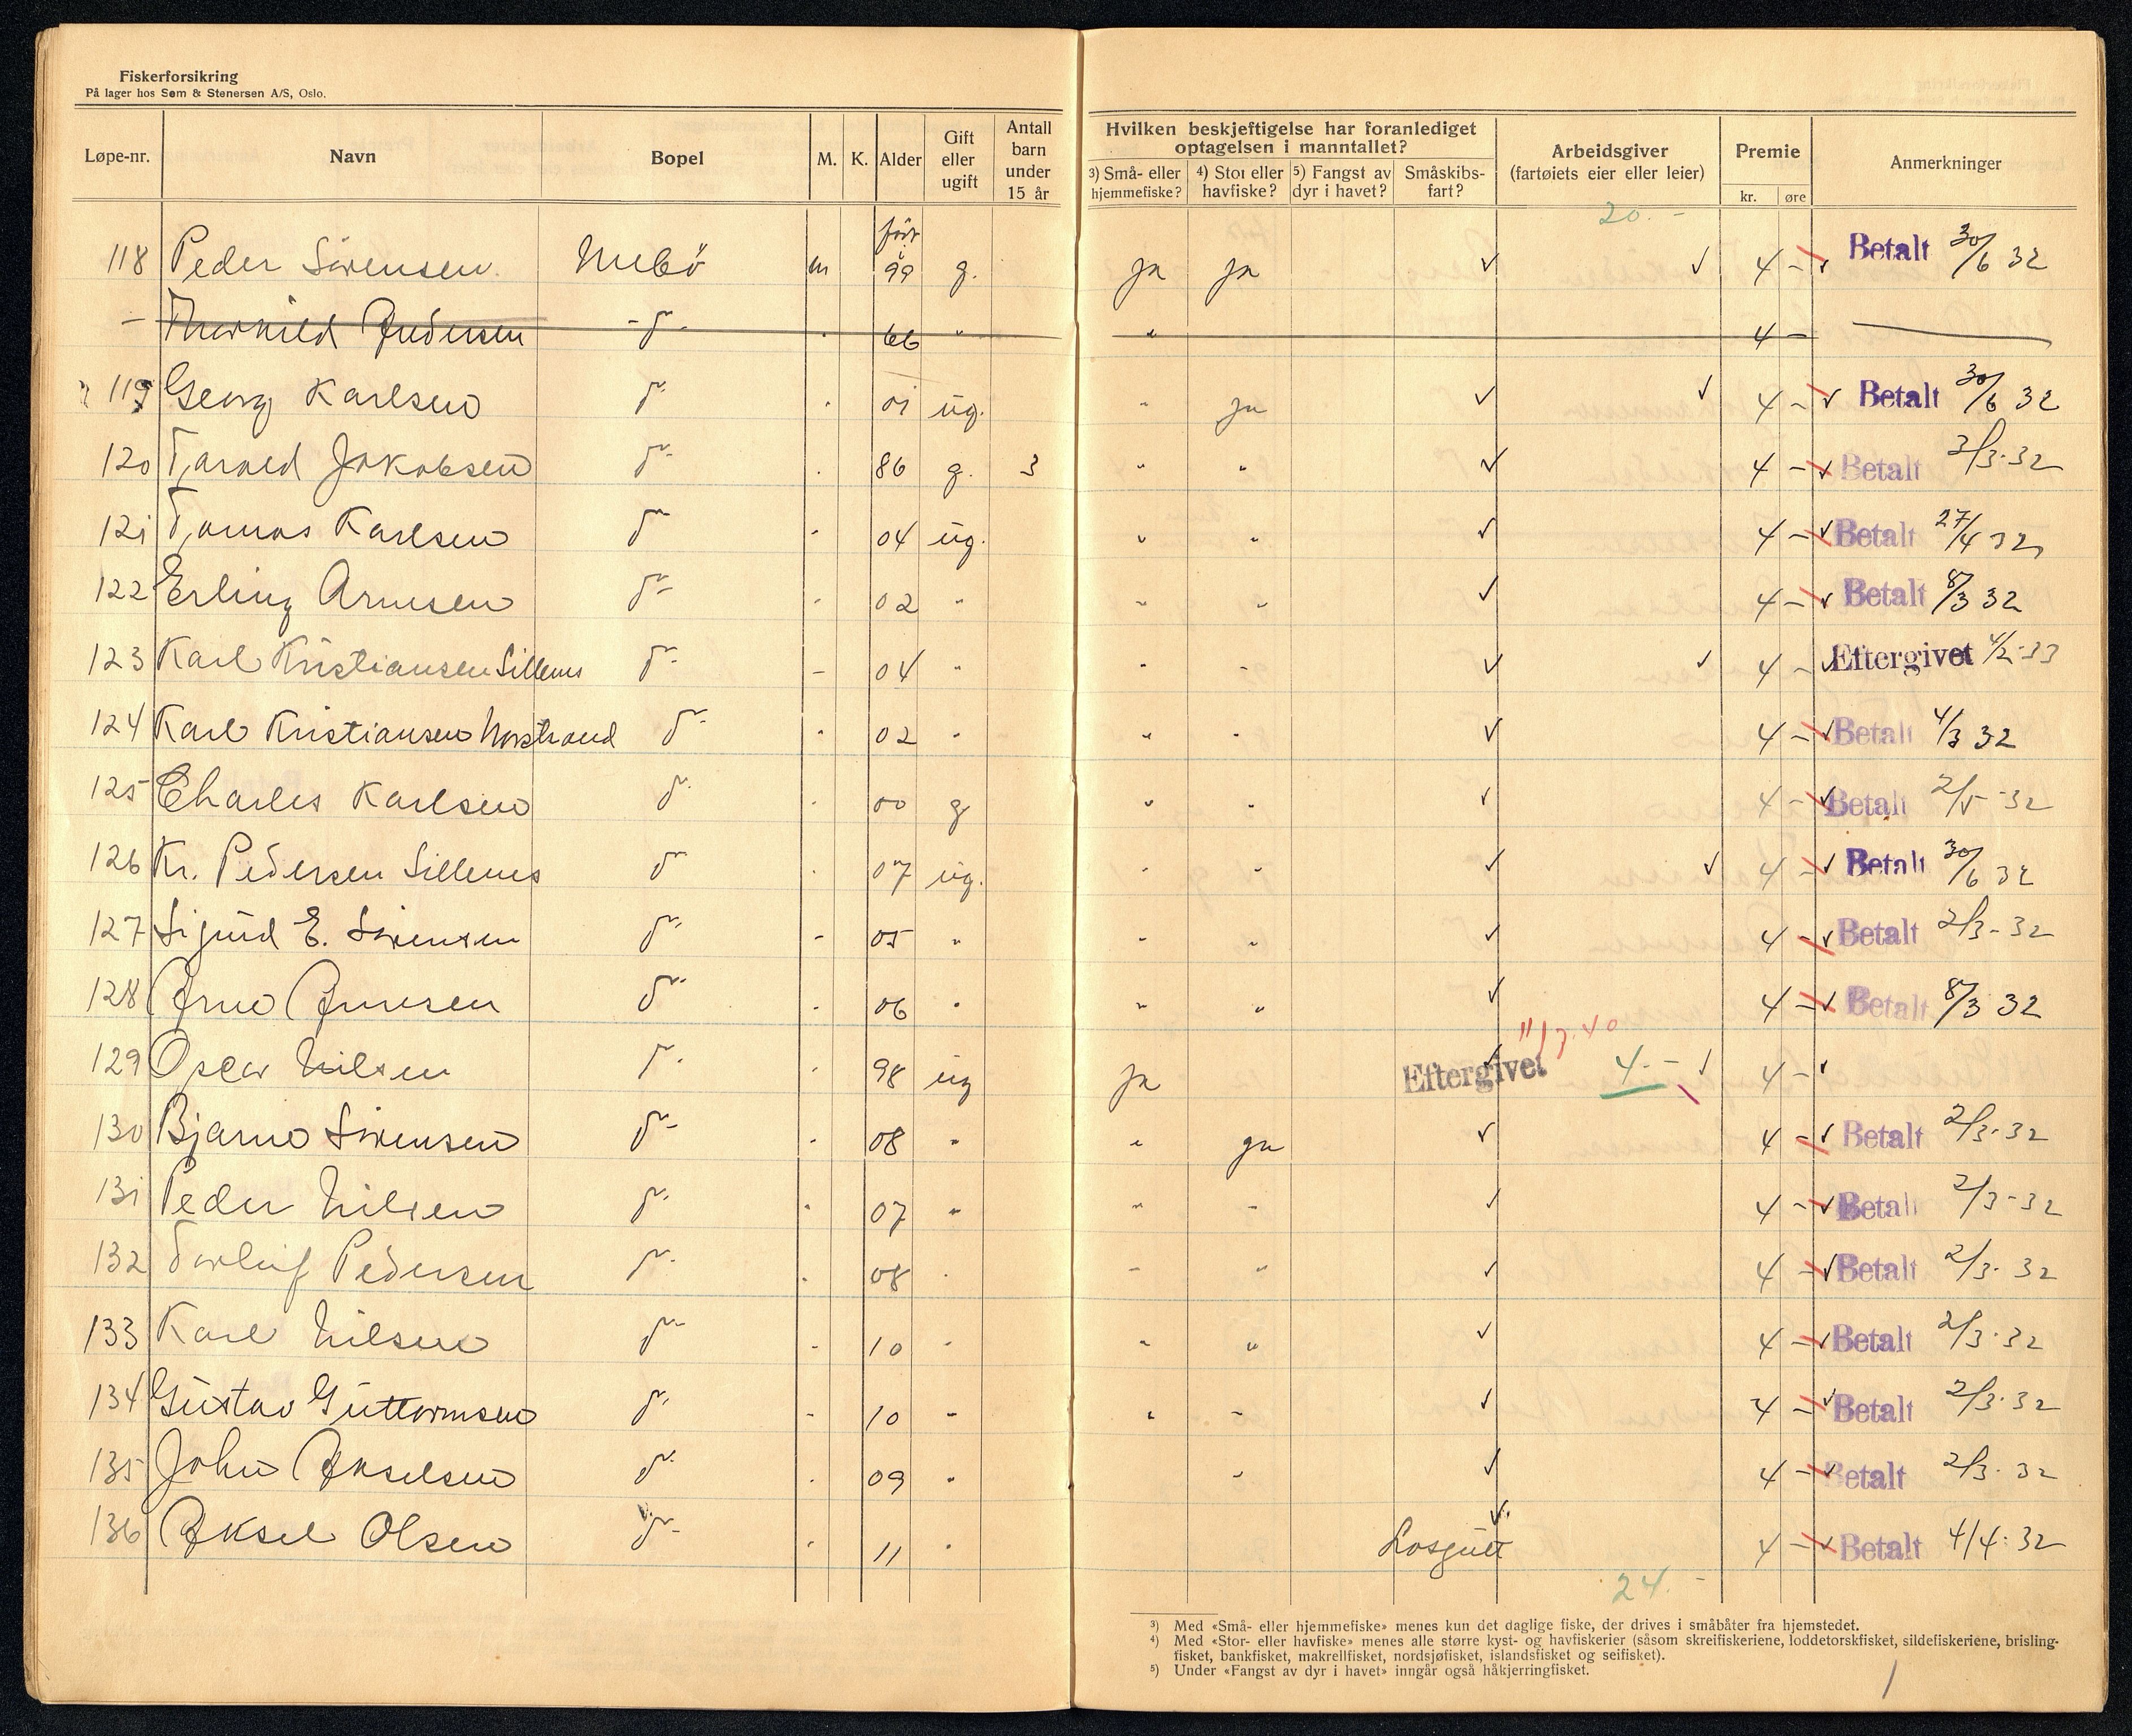 Fiskerforsikring
På lager hos Sem & Stenersen A/S, Oslo.
Løpe-nr. Navn Bopel M. K. Alder Gift eller ugift Antall barn under 15 år
Hvilken beskjeftigelse har foranlediget optagelsen i manntallet?
3) Små- eller hjemmefiske? 4) Stor eller havfiske? 5) Fangst av dyr i havet? Småskibs-fart? Arbeidsgiver (fartøiets eier eller leier) Premie kr. øre Anmerkninger
20.-
118 Peder Sörensen m 99 g. ja ja ✓ ✓ 4 - ✓ Betalt 30/6 32
- Andersen - d - 66 " " 4 -
119 Georg Karlsen d . 01 ug. " ja ✓ ✓ 4 - ✓ Betalt 30/6 32
120 Jakobsen d . 86 g. 3 " " ✓ 4 - ✓ Betalt 2/3-32
121 Karlsen d - 04 ug. " " ✓ 4 - ✓ Betalt 27/4 32
122 Erling Arnesen d - 02 " " " ✓ 4 - ✓ Betalt 8/3 32
123 Karl Kristiansen Sillenes d - 04 " " " ✓ ✓ 4 - ✓ Eftergivet 4/2-33
124 Karl Kristiansen d . 02 " " " ✓ 4 - ✓ Betalt 4/3 32
125 Charles Karlsen d . 00 g " " ✓ 4 - ✓ Betalt 2/5-32
126 Kr. Pedersen Sillenes d . 07 ug. " " ✓ ✓ 4 - ✓ Betalt 30/6 32
127 Sigurd E. Sörensen d - 05 " " " ✓ 4 - ✓ Betalt 2/3-32
128 Arne Arnesen d . 06 " " " ✓ 4 - ✓ Betalt 8/3 32
129 Oscar Nilsen d . 98 ug ja ✓ Eftergivet 4.- ✓ 4 - ✓
130 Bjarne Sörensen d . 08 " " ja ✓ 4 - ✓ Betalt 2/3-32
131 Peder Nilsen d . 07 " " " ✓ 4 - ✓ Betalt 2/3-32
132 Torleif Pedersen d . 08 " " " ✓ 4 - ✓ Betalt 2/3-32
133 Karl Nilsen d - 10 " " " ✓ 4 - ✓ Betalt 2/3-32
134 Gustav Guttormsen d - 10 " " " ✓ 4 - ✓ Betalt 2/3-32
135 John Akselsen d . 09 " " ✓ 4 - ✓ Betalt 2/3-32
136 Aksel Olsen d . 11 " Losgutt ✓ 4 - ✓ Betalt 4/4-32
24.-
3) Med «Små- eller hjemmefiske» menes kun det daglige fiske, der drives i småbåter fra hjemstedet.
4) Med «Stor- eller havfiske» menes alle større kyst- og havfiskerier (såsom skreifiskeriene, loddetorskfisket, sildefiskeriene, brisling-
fisket, bankfisket, makrellfisket, nordsjøfisket, islandsfisket og seifisket).
5) Under «Fangst av dyr i havet» inngår også håkjerringfisket.